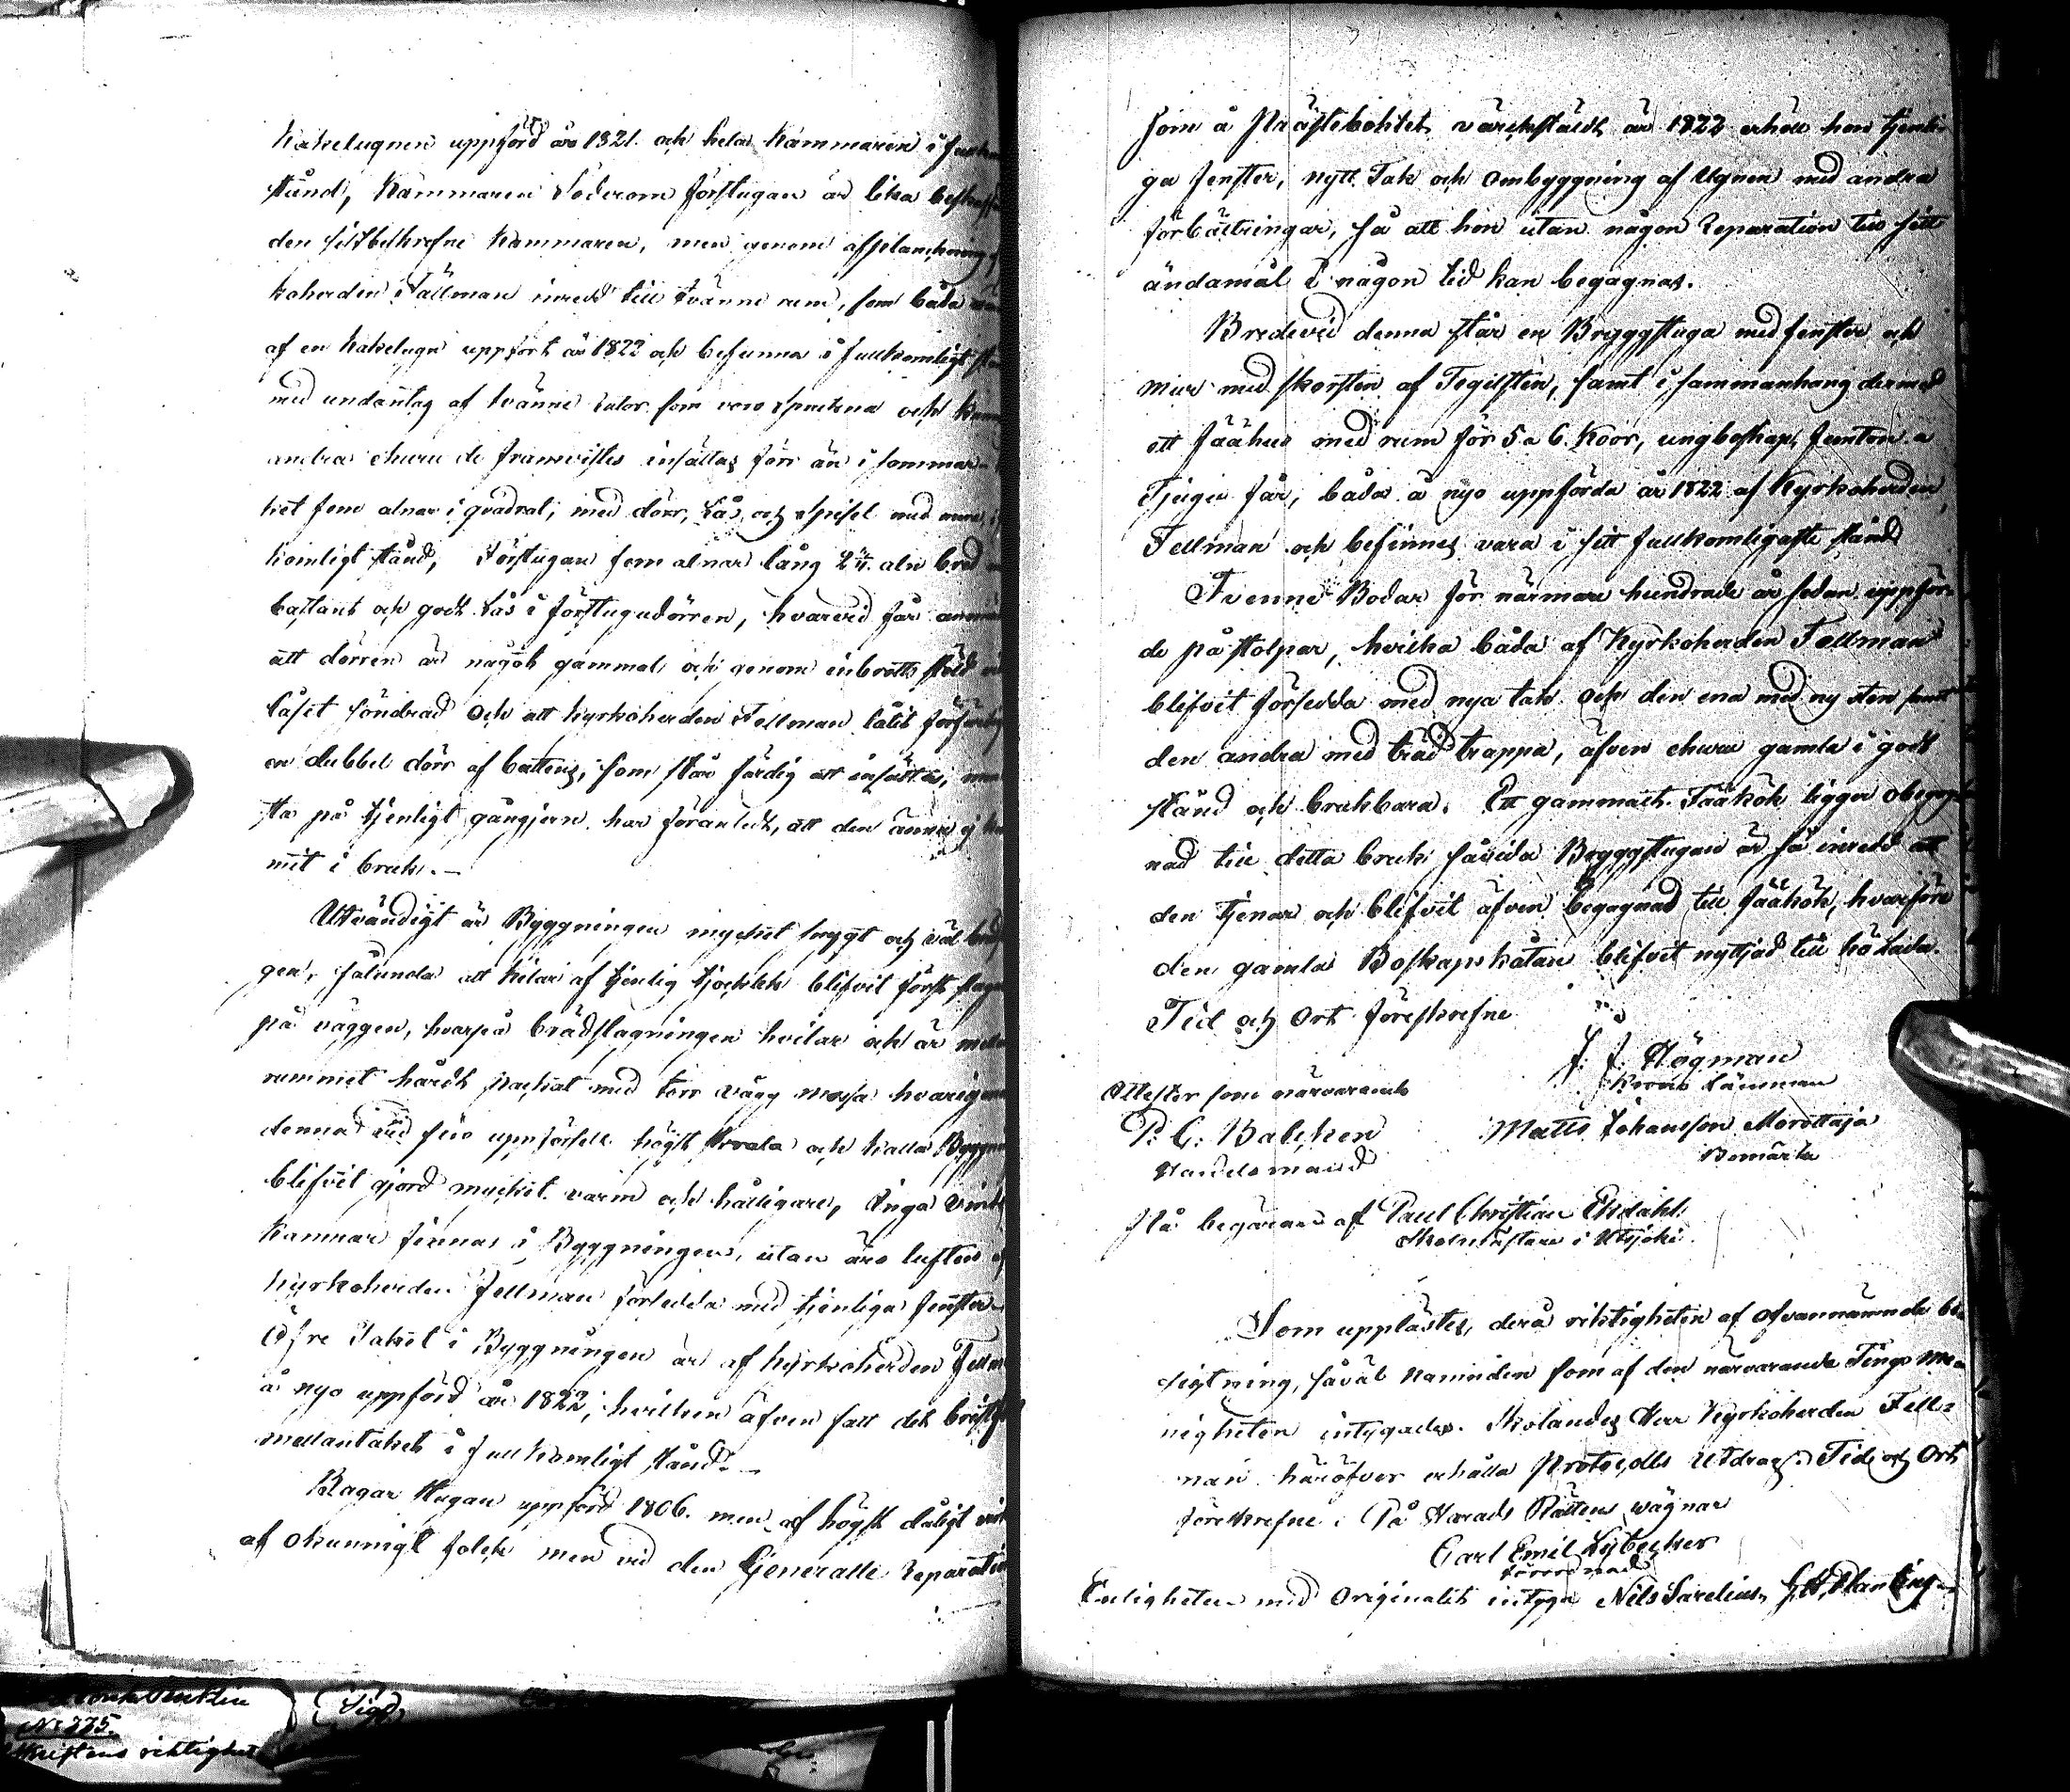 Kakelugnen uppförd år 1821. och hela Kammaren i
stånd, Kammaren Söderom förstugan är lika
den sistbeskrefne Kammaren, men genom afplanckning
koherden Fällman inredd till tvänne rum, som båda
af en kakelugn uppfört år 1822 och befunna i fullkomligt
med undantag af tvänne rutor som voro spruckna och
andra ehuru de framvistes insättas förr än i sommar
ket fem alnar i qvadrat, med dörr, Lås, och Spisel med mur, i
komligt stånd, Förstugan fem alnar lång 2 aln bred
bastant och godt lås i förstugudörren, hvarvid får
att dörren är något gammal och genom inbrotts stöld
låset söndrad och att kyrkoherden Fellman låtit
en dubbel dörr af battens, som står färdig att insättas,
sta på tjenligt gångjern har föranledt, att den ännu ej
mit i bruk. —
Utvändigt är Byggningen mycket snygt och väl
gen, sålunda att kilar af tjenlig tjocklek blifvit först
på väggen, hvarpå brädslagningen hvilar och är
rummet hårdt packat med torr vägg mossa
denna vid sin uppförsell högst svala och kalla
blifvit gjord mycket varm och hålligare, Inga
kamrar finnas i Byggningen, utan äro luften
kyrkoherden Fellman försedda med tjenliga fenster
Öfre Taket i Byggningen är af kyrkoherden
å nyo uppförd år 1822, hvilken äfven satt det
mellantaket i fullkomligt stånd. —
Bagar stugan uppförd 1806. men af högst dåligt
af okunnigt folck men vid den Generalle Reparation
som å Prästebohlet värckstäldt år 1822 erhöll hon tjenli-
ga fenster, nytt Tak och ombyggning af Ugnen med andra
förbättringar, så att hon utan någon Reparation till sitt
ändamål i någon tid kan begagnas.
Bredevid denna står en Bryggstuga med fenster och
mur med skorsten af Tegelsten, samt i sammanhang dermed
ett Fäähus med rum för 5 a 6. Koor, ungboskap, femton a
Tjugu får, båda å nyo uppförda år 1822 af Kyrkoherden
Fellman och befinnes vara i sitt fullkomligaste stånd
Tvenne Bodar för närmare hundrade år sedan uppför-
de på stolpar, hvilka båda af Kyrkoherden Fellman
blifvit försedda med nya tak och den ena med ny sten samt
den andra med träd trappa, äfven ehuru gamla i godt
stånd och brukbara. Ett gammalt Fääkök ligger
nad till detta bruk såvida Bryggstugan är så inredd att
den tjenar och blifvit äfven begagnad till fääkök, hvarföre
den gamla Boskapskåtan blifvit nyttjad till hölada.
Tid och Ort föreskrefne
J. J. Högman
Krono Länsman
Attester som närvarande
P. C. Balcken
Handelsmand
Matts Johansson Morottaja
Bomärke
På begäran af Paul Christian Ekdahl
Skolmästare i Utsjoki.
Som upplästes, derå riktigheten af ofvannämnde be-
sigtning, såväl Nämnden som af den närvarande Tings me-
nigheten intygades. Skolandes Herr Kyrkoherden Fell-
man häröfver erhålla Protocolls Utdrag. Tid och Ort
föreskrefne. På Härads Rättens wägnar
Carl Emil Lybecker
förordnad
Enligheten med Originalet intyga Nils Sarelius,
No 335.
riktighet